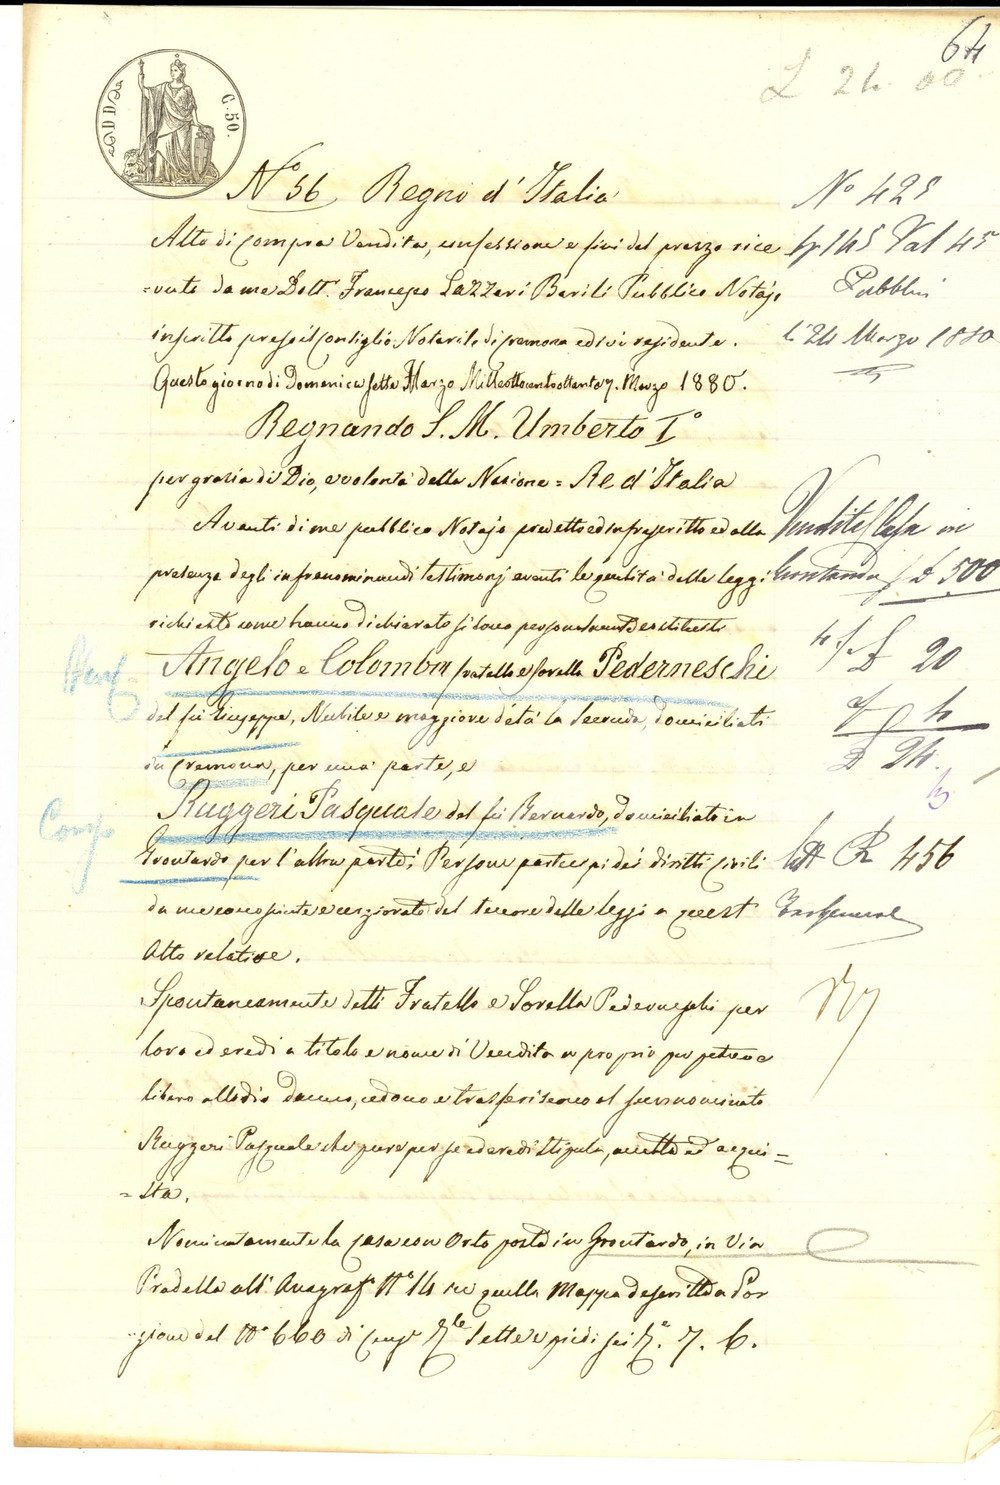 64
L 24.00
C. 50.
N° 56 Regno d'Italia
Atto di compra Vendita, confessione e fini del prezzo rice
=vuto da me Dott. Francesco Lazzari Barili Pubblico Notajo
inscritto presso il Consiglio Notarile di Cremona ed ivi residente.
Questo giorno di Domenica sette Marzo Milleottocentottanta 7. Marzo 1880.
Regnando S. M. Umberto I°
per grazia di Dio, e volontà della Nazione = Re d'Italia
Avanti di me pubblico Notajo predetto ed infrascritto ed alla
presenza degli infranominandi testimonj aventi le qualità dalle leggi
richieste come hanno dichiarato si sono personalmente costituiti
Angelo e Colomba fratello e sorella Pederneschi
del fu Giuseppe, Nubile e maggiore d'età la seconda, domiciliati
in Cremona, per una parte, e
Ruggeri Pasquale del fu Bernardo, domiciliato in
Grontardo per l'altra parte; Persone partecipi dei diritti civili
da me conosciute e cerziorate del tenore delle leggi a quest'
Atto relative.
Spontaneamente detti Fratello e Sorella Pederneschi per
loro ed eredi a titolo e nome di Vendita in proprio perpetuo e
libero allodio danno, cedono e trasferiscono al summominato
Ruggeri Pasquale che pure per se ed eredi stipula, accetta ed acqui=
=sta.
Nominatamente la casa con Orto posta in Grontardo, in Via
Pradella all' Anagraf° N° 14 in quella Mappa descritta Por
=zione del N° 660 di Cens° sette e piedi sei 7. 6.
N° 425
Vol 45
Pubblici
li 24 Marzo 1880
Vendite Casa in
Grontardo £ 500
£ 20
4
£ 24.
456
Vend
Comp